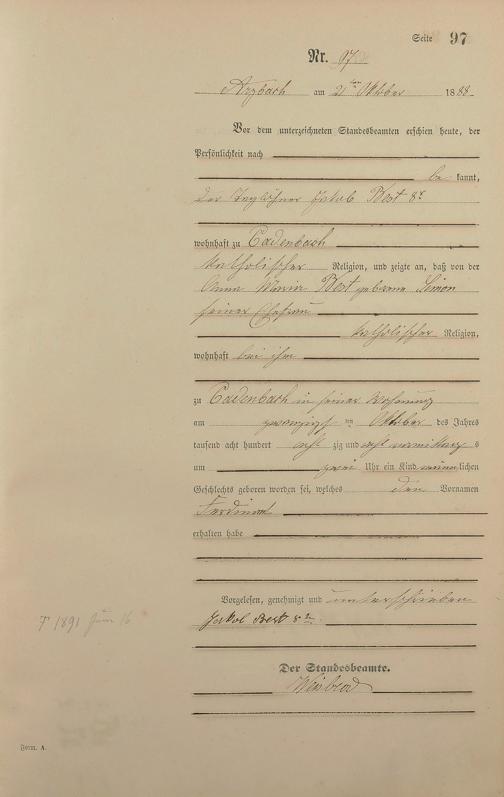 Seite 97
Nr. 97
Arzbach am 21ten Oktober 1888.
Vor dem unterzeichneten Standesbeamten erschien heute, der
Persönlichkeit nach
be kannt,
der Taglöhner Jakob Best 8r
wohnhaft zu Cadenbach
katholischer Religion, und zeigte an, daß von der
Anna Maria Best geborene Simon
seiner Ehefrau
katholischer Religion,
wohnhaft bei ihm
zu Cadenbach in seiner Wohnung
am zwanzigsten Oktober des Jahres
tausend acht hundert acht zig und acht vormittags
um zwei Uhr ein Kind männlichen
Geschlechts geboren worden sei, welches den Vornamen
Ferdinant
erhalten habe
Vorgelesen, genehmigt und unterschrieben
Jakob Best 8r
Der Standesbeamte.
† 1891 Juni 16
Form. A.